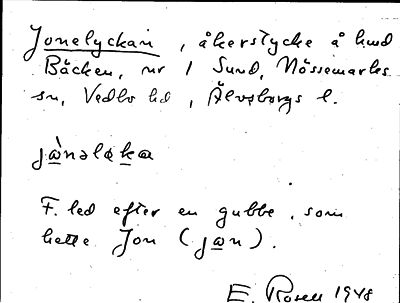 Jonelyckan, åkerstycke å hmd
Bäcken, nr 1 Sund, Nössemarks
sn, Vedbo hd, Älvsborgs l.
jànələka
F. led efter en gubbe, som
hette Jon (jan).
E. Rosell 1948